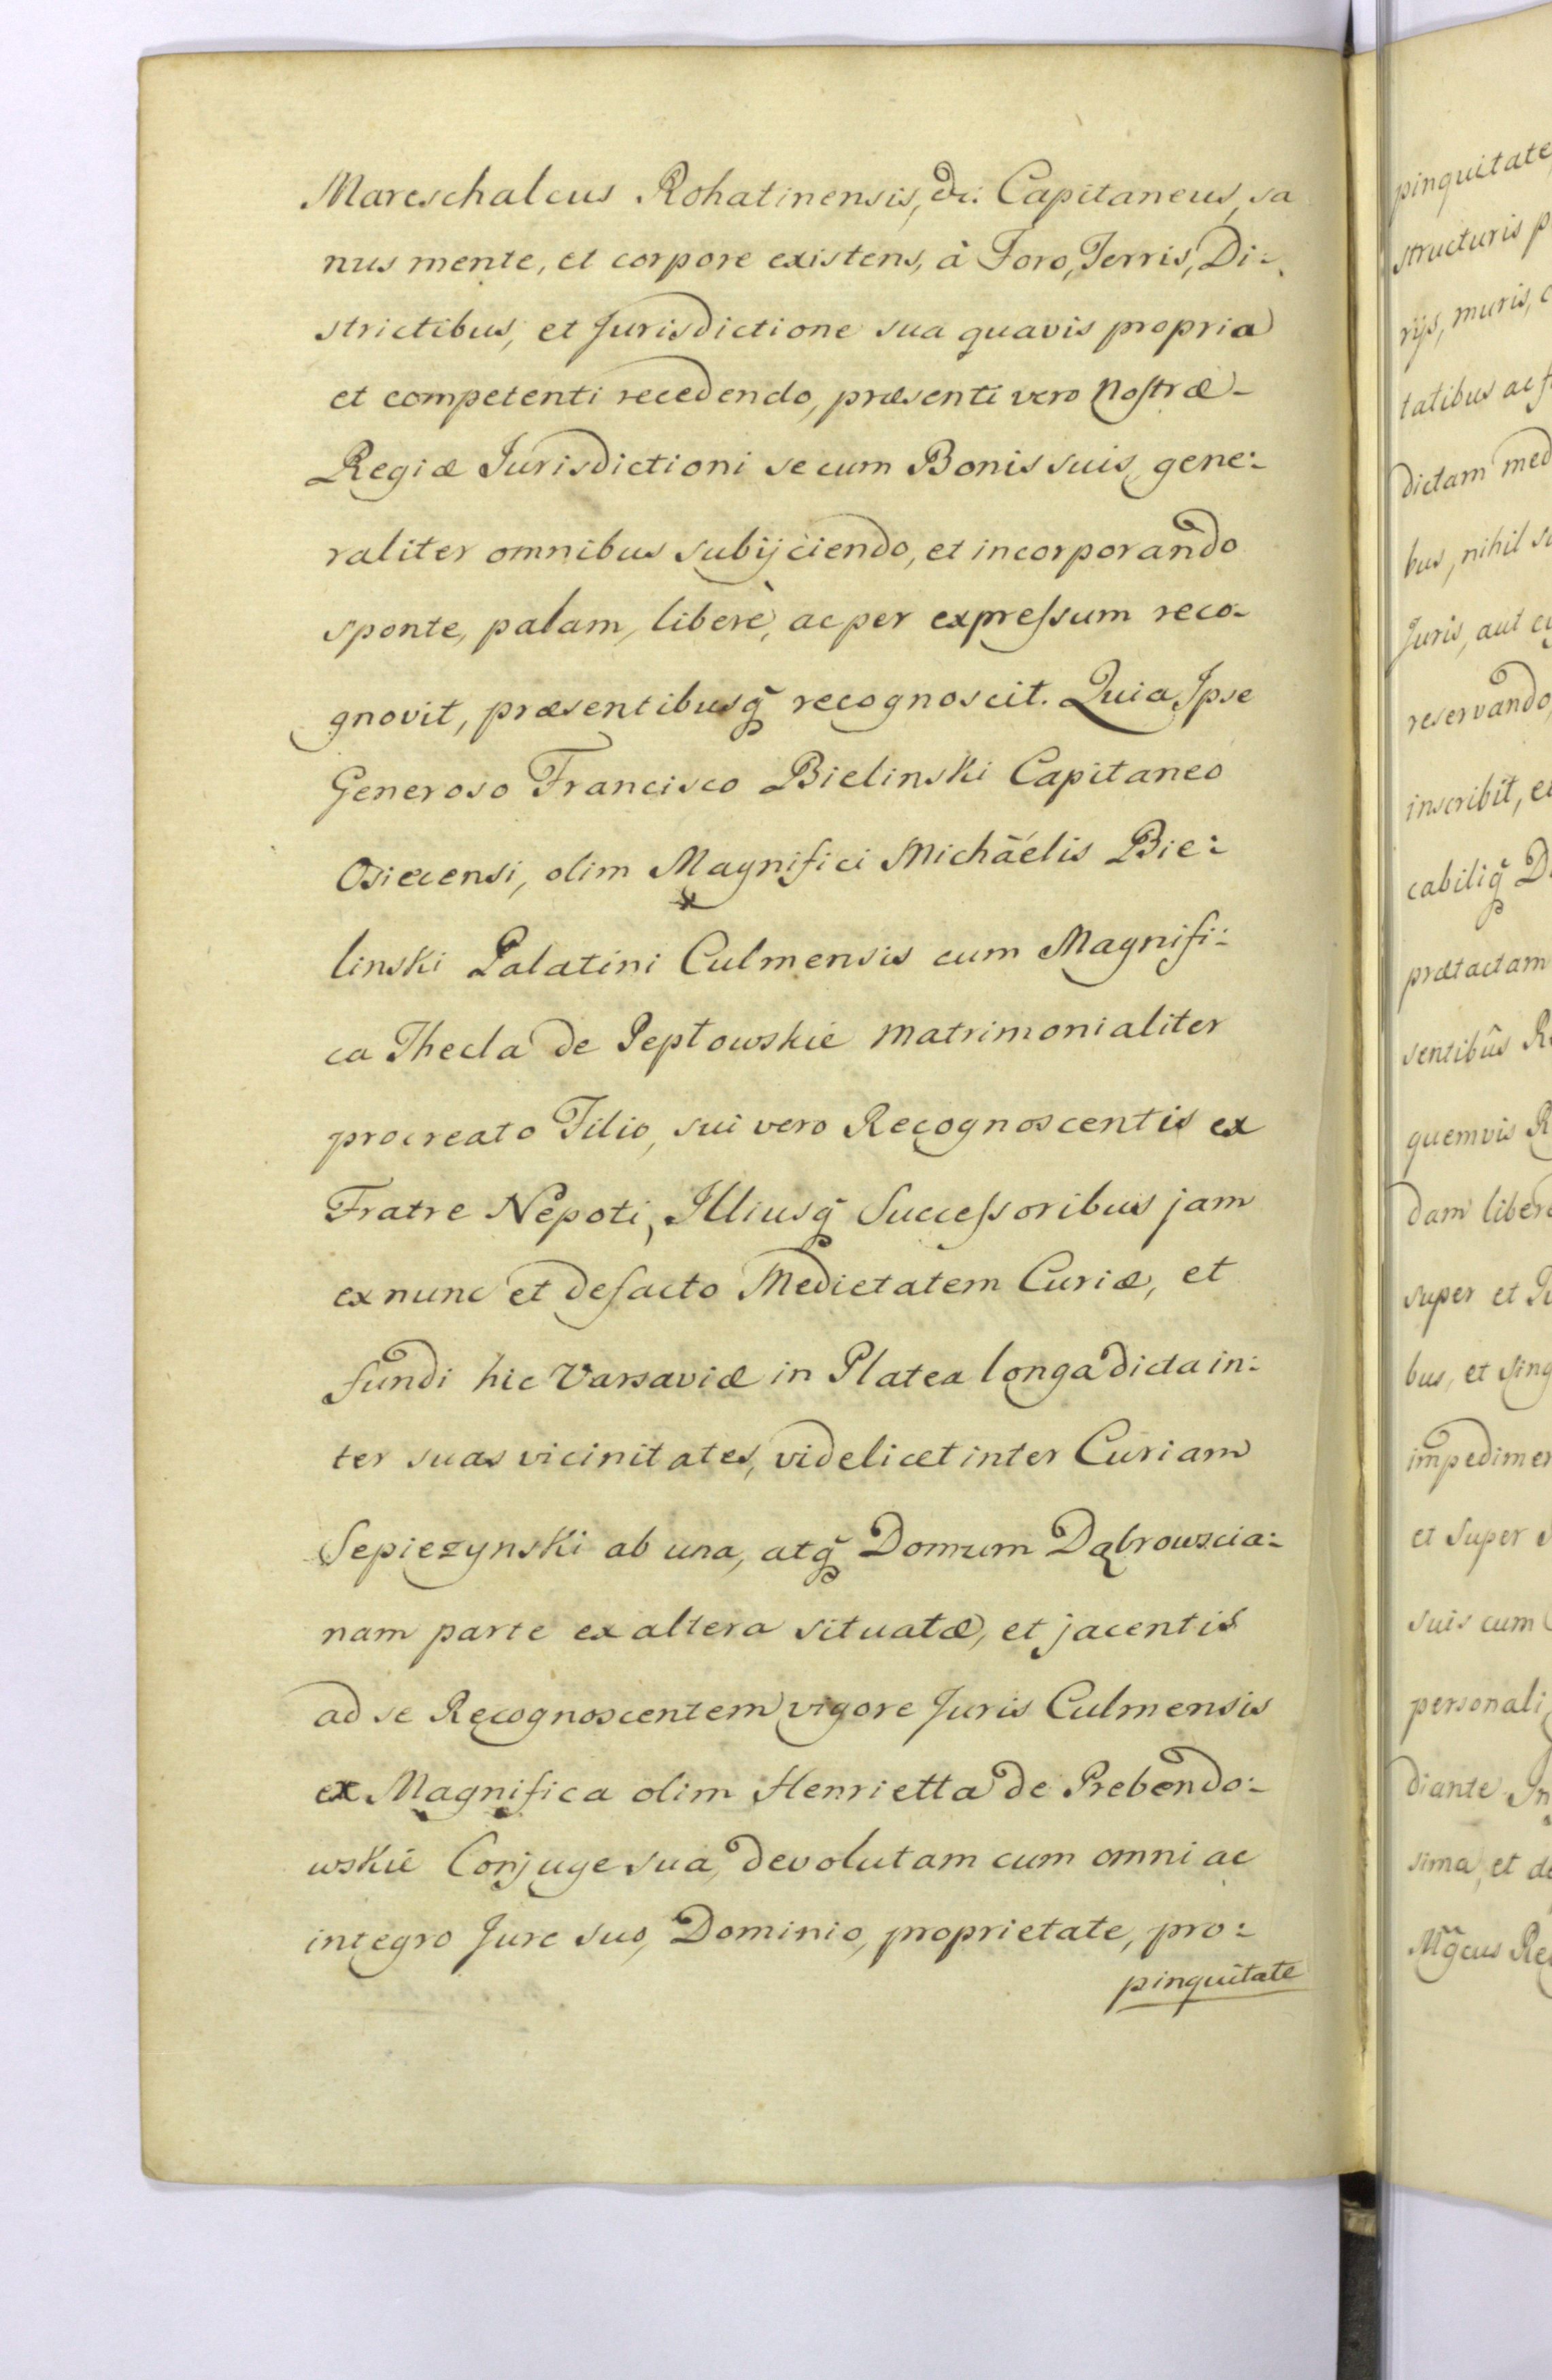 Mareschalcus Rohatinensis, &c: Capitaneus, sa
nus mente, et corpore existens, à Foro, Terris, Di-
strictibus, et Jurisdictione sua quavis propria
et competenti recedendo, præsenti vero Nostræ-
Regiæ Jurisdictioni se cum Bonis suis gene:
raliter omnibus subijciendo, et incorporando
sponte, palam, liberè, ac per expressum reco-
gnovit, præsentibusq̃ recognoscit. Quia Ipse
Generoso Francisco Bielinski Capitaneo
Osiecensi, olim Magnifici Michäélis Bie:
linski Palatini Culmensis cum Magnifi:
ca Thecla de Peptowskie matrimonialiter
procreato Filio, sui vero Recognoscentis ex
Fratre Nepoti, Illiusq̃ Successoribus jam
ex nunc et defacto Medietatem Curiæ, et
fundi hic Varsaviæ in Platea longa dicta in:
ter suas vicinitates, videlicet inter Curiam
Sepiezynski ab una, atq̃ Domum Dąbrowscia:
nam parte ex altera situatæ, et jacentis
ad se Recognoscentem vigore Juris Culmensis
ex Magnifica olim Henrietta de Prebendo:
wskie Conjuge sua, devolutam cum omni ac
integro Jure suo, Dominio, proprietate, pro:
pinquitate
pinquitate
structuris p
rijs, muris, c
tatibus ac f
dictam med
bus, nihil su
Juris, aut
reservando,
inscribit, et
cabiliq̃ D
prætactam
sentibûs R
quemvis R
dam libere
super et
bus, et sing
impedimen
et super s
suis cum
personali
diante In
sima, et de
Mg̃cus Re